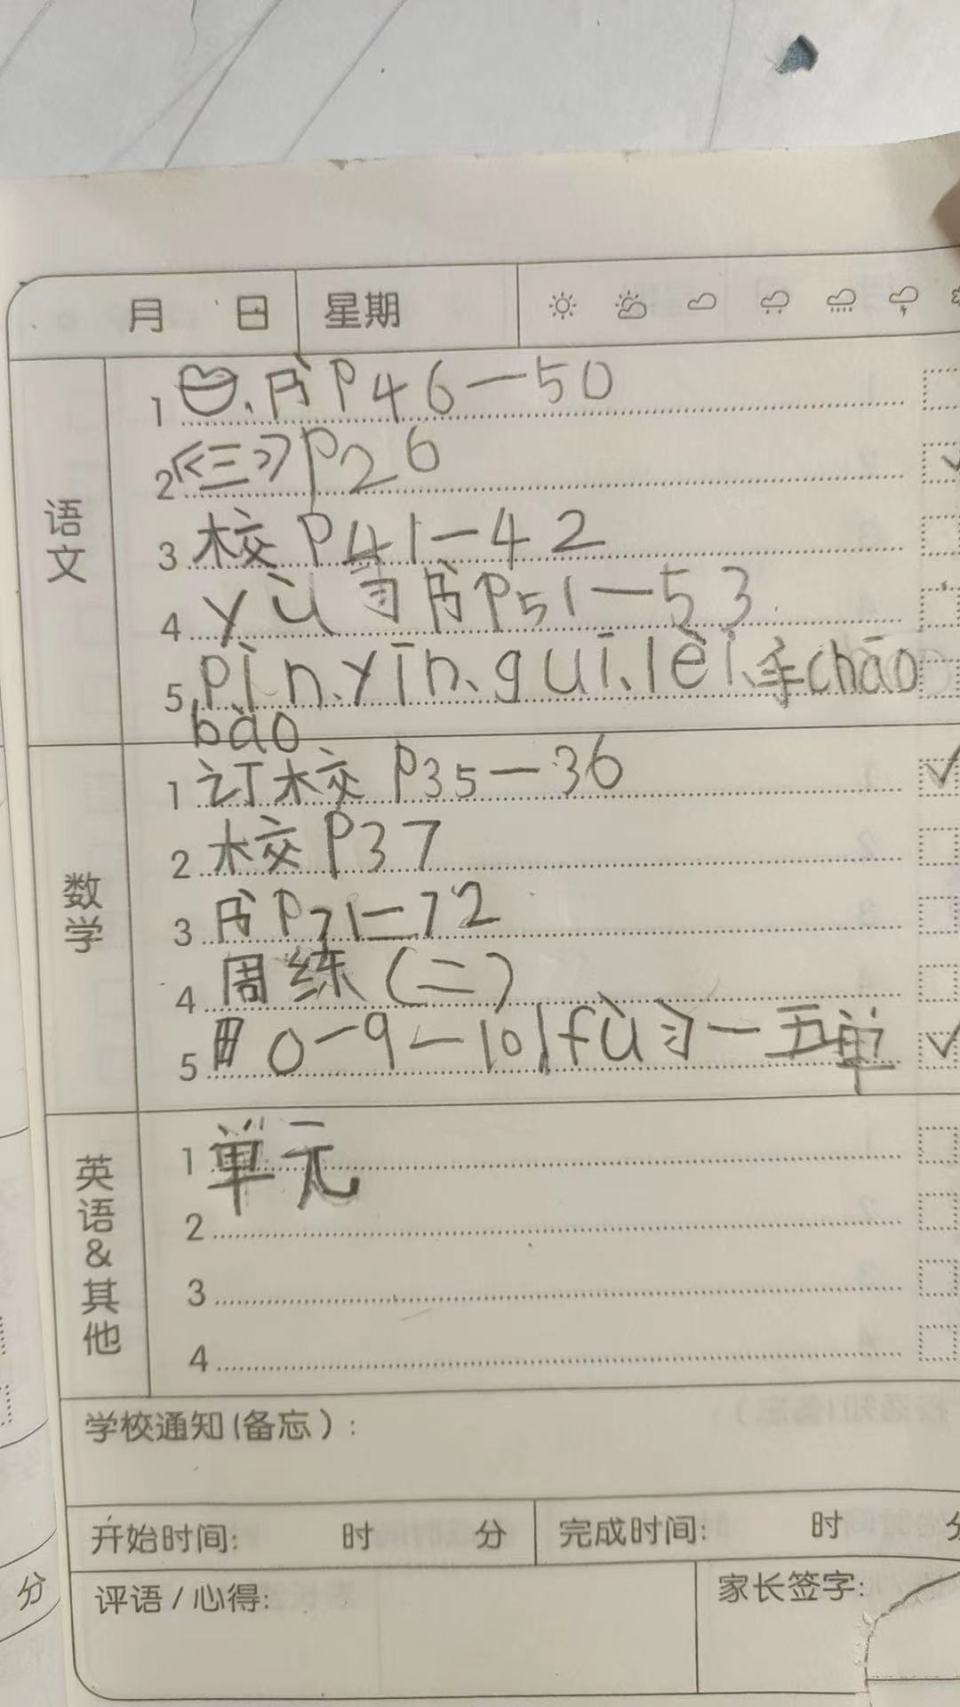 月 日 星期
语文
1 、书P46—50
2《三》P26
3 校P41—42
4 yù习书P51—53
5 pīn、yīn、guī、lèi、手chāo
bào
数学
1 订校P35—36
2 校P37
3 书P71—72
4 周练(二)
5 0—9—10 fù习一五单
英语&其他
1 单元
2
3
4
学校通知(备忘):
开始时间: 时 分 完成时间: 时
评语/心得: 家长签字:
分